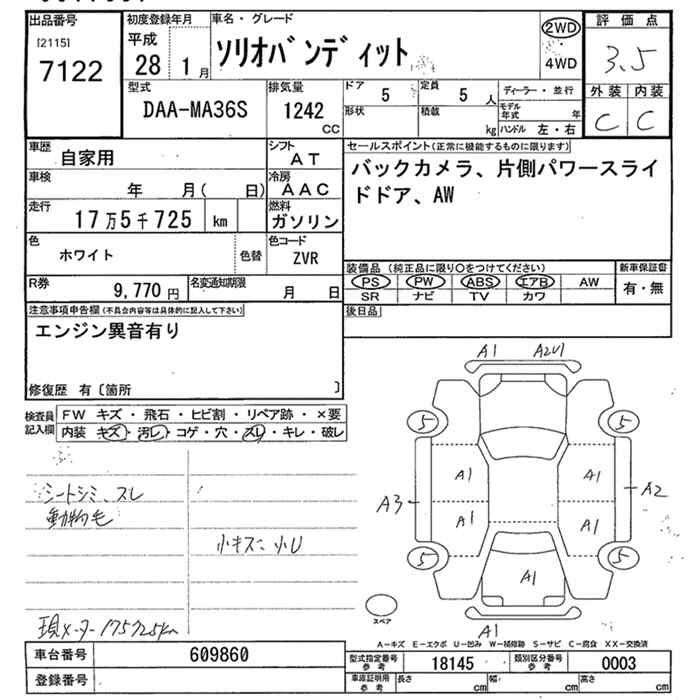 出品番号
[2115]
7122
初度登録年月
平成
28 1月
車名・グレード
ソリオバンディット
2WD
4WD
評価点
3.5
外装 内装
C C
型式
DAA-MA36S
排気量
1242
CC
ドア
5
定員
5 人
形状
積載
kg
ディーラー・並行
モデル年式 年
ハンドル 左・右
車歴
自家用
シフト
AT
車検
年 月( 日)
冷房
AAC
走行
17万5千725 km
燃料
ガソリン
色
ホワイト
色替
色コード
ZVR
R券
9,770 円
名変通知期限
月 日
セールスポイント(正常に機能するものに限ります)
バックカメラ、片側パワースライ
ドドア、AW
装備品 (純正品に限り○をつけてください)
PS PW ABS エアB AW
SR ナビ TV カワ
新車保証書
有・無
後日品
注意事項申告欄(不具合内容等は具体的に記入して下さい)
エンジン異音有り
修復歴 有〔箇所 〕
検査員記入欄
FW キズ・飛石・ヒビ割・リペア跡・×要
内装 キズ・汚レ・コゲ・穴・スレ・キレ・破レ
シートシミ、スレ
動物毛
小キズ、小U
現メーター175725km
A1 A2U1
5 5
A1 A1
A3 A2
A1 A1
5 5
A1
スペア
A1
A-キズ E-エクボ U-凹み W-補修跡 S-サビ C-腐食 XX-交換済
車台番号
609860
登録番号
型式指定番号参考
18145
類別区分番号参考
0003
車庫証明用参考
長さ cm
幅 cm
高さ cm